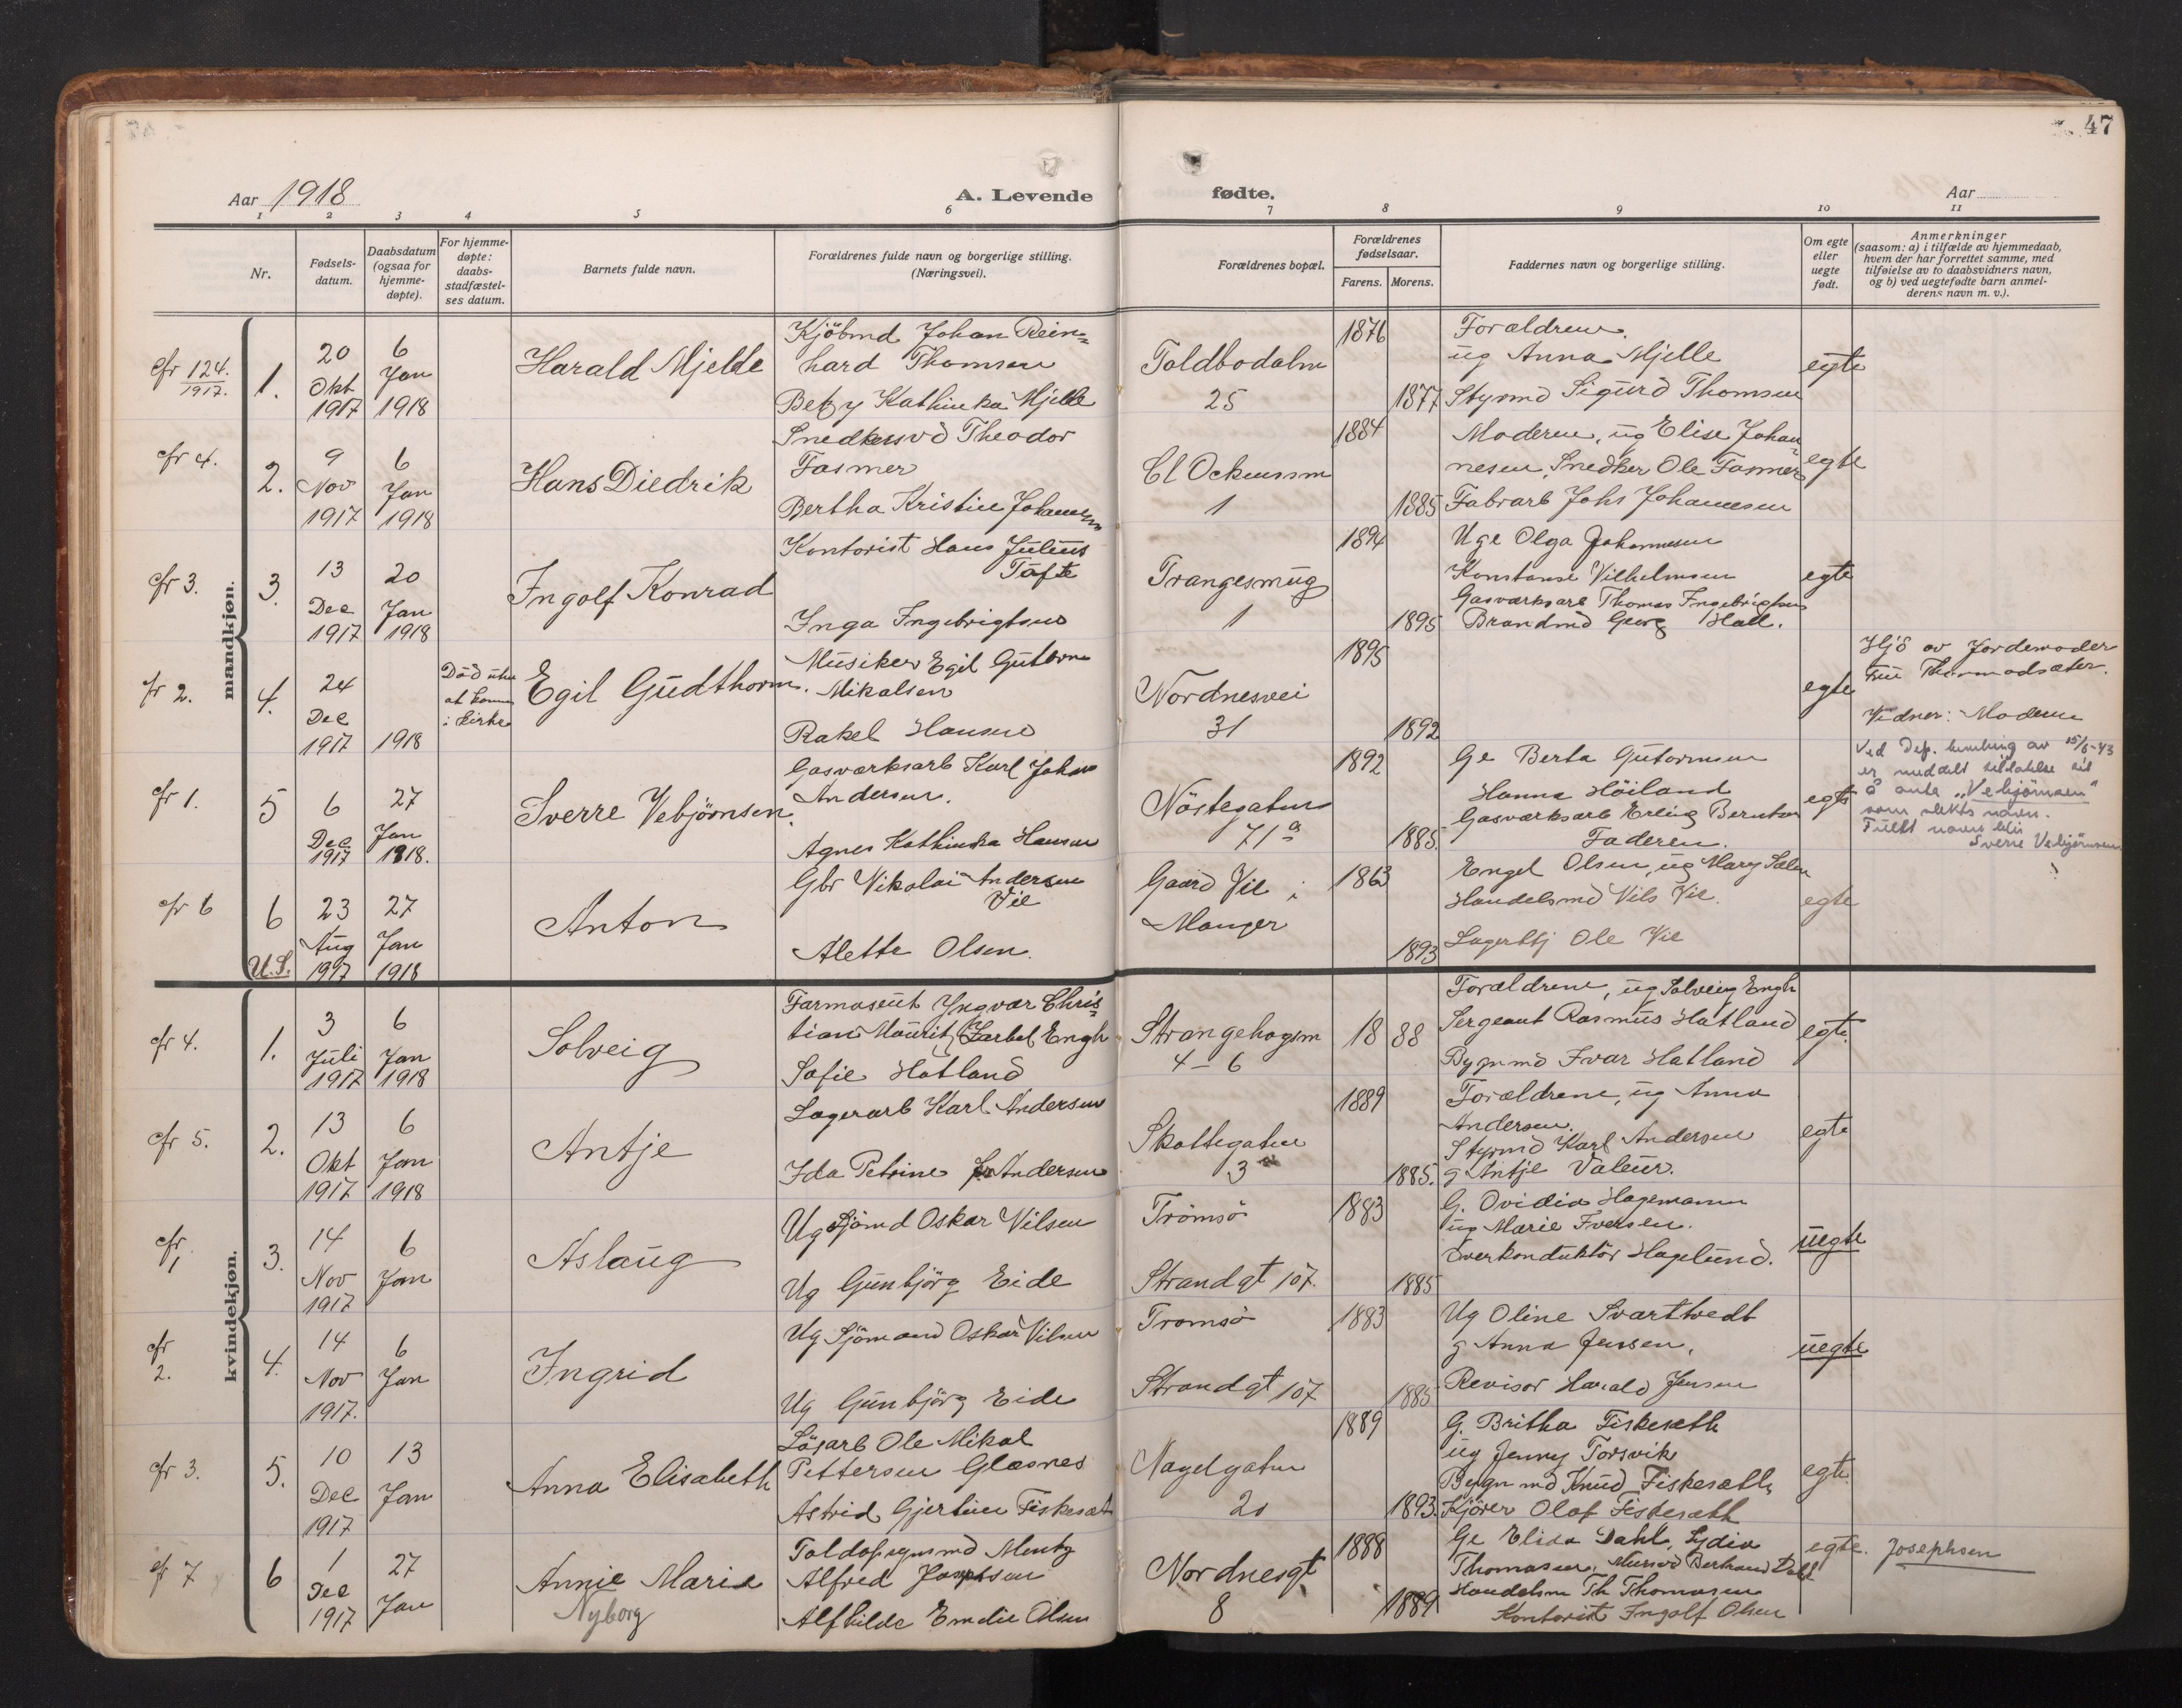 47
Aar 1918
A. Levende
fødte.
Aar
1 2 3 4 5 6 7 8 9 10 11
Nr.
Fødsels-
datum.
Daabsdatum
(ogsaa for
hjemme-
døpte).
For hjemme-
døpte:
daabs-
stadfæstel-
ses datum.
Barnets fulde navn.
Forældrenes fulde navn og borgerlige stilling.
(Næringsvei).
Forældrenes bopæl.
Forældrenes
fødselsaar.
Farens. Morens.
Faddernes navn og borgerlige stilling.
Om egte
eller
uegte
født.
Anmerkninger
(saasom: a) i tilfælde av hjemmedaab,
hvem der har forrettet samme, med
tilføielse av to daabsvidners navn,
og b) ved uegtefødte barn anmel-
derens navn m. v.).
mandkjøn.
cfr 124.
1917.
1.
20
Okt
1917
6
Jan
1918
Harald Mjelde
Kjöbmd Johan Rein=
hard Thomsen
Betzy Kathinka Mjelde
Toldbodalm
25
1876
1877
Forældrene.
ug Anna Mjelle
Styrmd Sigurd Thomsen
egte
cfr 4.
2.
9
Nov
1917
6
Jan
1918
Hans Diedrik
Snedkersvd Theodor
Fasmer
Bertha Kristine Johannesen
Cl Ockenssm
1
1884
1885
Moderen, ug Elise Johan
nesen, Snedker Ole Fasmer
Fabrarb Johs Johannesen
egte
cfr 3.
3.
13
Dec
1917
20
Jan
1918
Ingolf Konrad
Kontorist Hans Julius
Tafte
Inga Ingebrigtsen
Trangesmug
1
1894
1895
Uge Olga Johannesen
Konstanse Vilhelmsen
Gasværksarb Thomas Ingebrigtsen
Brandmd Georg Hall.
egte
cfr 2.
4.
24
Dec
1917
1918
Död uten
at komme
i kirke
Egil Gudthorm.
Musiker Egil Gutorm
Mikalsen
Rakel Hansen
Nordnesvei
31
1895
1892
egte
Hjd av Jordemoder
Fru Thormodsæter.
Vidner: Moderen
cfr 1.
5
6
Dec
1917
27
Jan
1918.
Sverre Vebjörnsen.
Gasværksarb Karl Johan
Andersen.
Agnes Kathinka Hansen
Nöstegaten
71 a
1892
1885.
Ge Berta Gutormsen
Hanna Höiland
Gasværksarb Erling Berntsen
Faderen.
egte
Ved Dep. bevilling av 15/6-43
er meddelt tillatelse til
å anta "Vebjörnsen"
som slekts navn.
Fullt navn blir
Sverre Vebjörnsen
cfr 6
6
U.S.
23
Aug
1917
27
Jan
1918
Anton
Gbr Nikolai Andersen
Vie
Alette Olsen.
Gaard Vie i
Manger
1863
1893
Engel Olsen, ug Mary Salen
Handelsmd Nils Vie.
Lagerbtj Ole Vie
egte
kvindekjøn.
cfr 4.
1.
3
Juli
1917
6
Jan
1918
Solveig
Farmaseut Yngvar Chris=
tian Mauritz Zarbel Engh
Sofie Hatland
Strangehagem
4 – 6
18 88
Forældrene, ug Solveig Engh
Sergeant Rasmus Hatland
Bygnmd Ivar Hatland
egte.
cfr 5.
2.
13
Okt
1917
6
Jan
1918
Antje
Lagerarb Karl Andersen
Ida Petrine Andersen
Skottegaten
3
1889
1885.
Forældrene, ug Anna
Andersen.
Styrmd Karl Andersen
g Antje Valeur.
egte
cfr
1
3.
14
Nov
1917
6
Jan
Aslaug
Ug Sjömd Oskar Nilsen
Ug Gunbjörg Eide
Tromsö
Strandgt 107.
1883
1885
G. Ovidia Hagemann
ug Marie Iversen.
Overkonduktör Hagelund.
uegte
cfr
2.
4.
14
Nov
1917.
6
Jan
Ingrid
Ug Sjömand Oskar Nilsen
Ug Gunbjörg Eide
Tromsö
Strandgt 107
1883
1885
Ug Oline Svarttvedt
g Anna Jensen,
Revisor Harald Jensen
uegte
cfr 3.
5.
10
Dec
1917
13
Jan
Anna Elisabeth
Lösarb Ole Mikal
Pettersen Glasnes
Astrid Gjertine Fiskesæt
Nagelgaten
20
1889
1893.
G. Britha Fiskesæth
ug Jenny Torsvik
Bygnmd Knud Fiskesæth
Kjörer Olaf Fiskesæth
egte
cfr 7
6
1
Dec
1917
27
Jan
Annie Marie
Nyborg
Toldopsynsmd Mentz
Alfred Josephsen
Alfhilde Emelie Olsen
Nordnesgt
8
1888
1889
Ge Elida Dahl, Lydia
Thomasen, Mursvd Bernhard Dahl
Handelsm Th Thomasen
Kontorist Ingolf Olsen
egte.
Josephsen